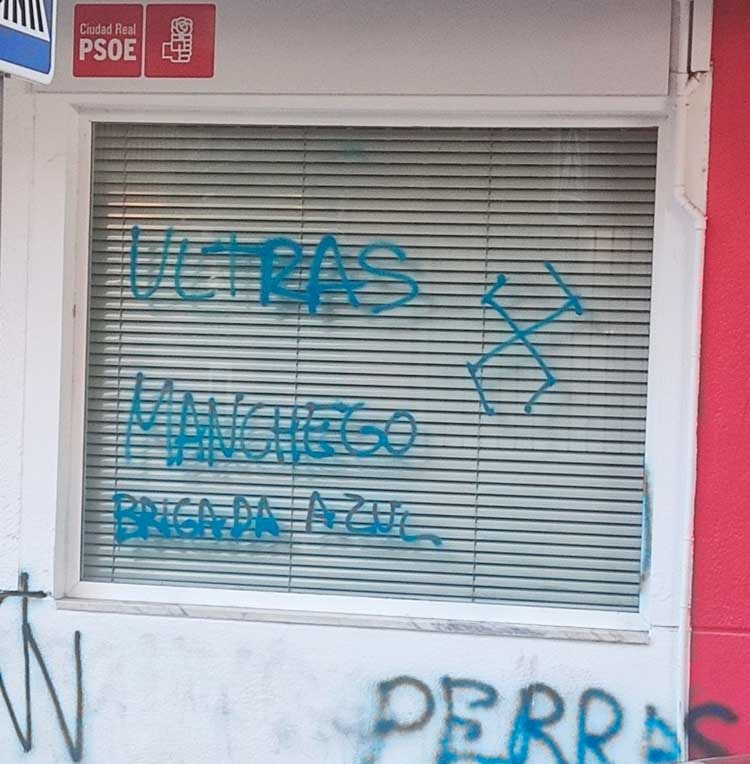 Ciudad Real
PSOE
ULTRAS
MANCHEGO
BRIGADA AZUL
PERRAS